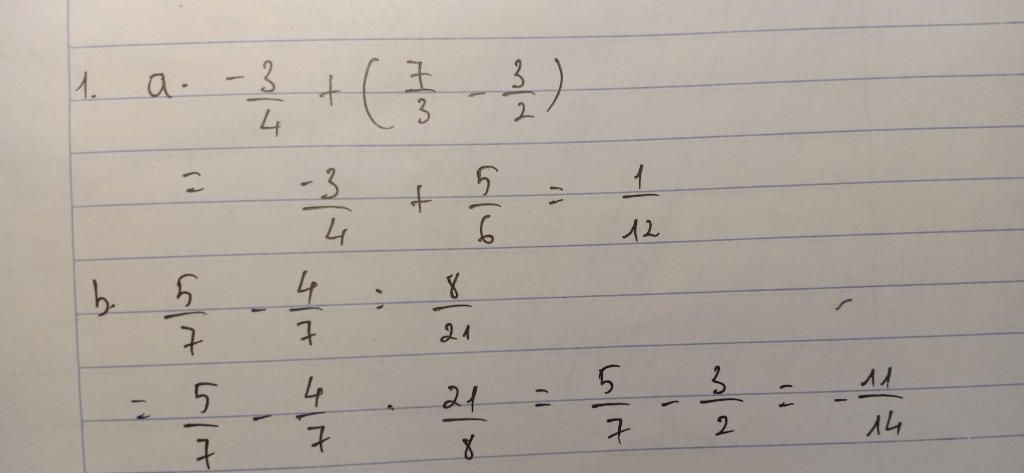 1. a. -3/4 + (7/3 - 3/2)
= -3/4 + 5/6 = 1/12
b. 5/7 - 4/7 : 8/21
= 5/7 - 4/7 . 21/8 = 5/7 - 3/2 = -11/14